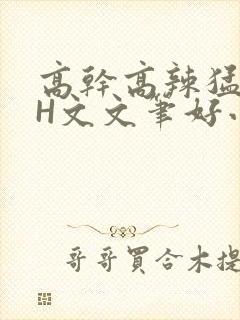 高幹高辣猛
H文文筆好
哥哥買合木提